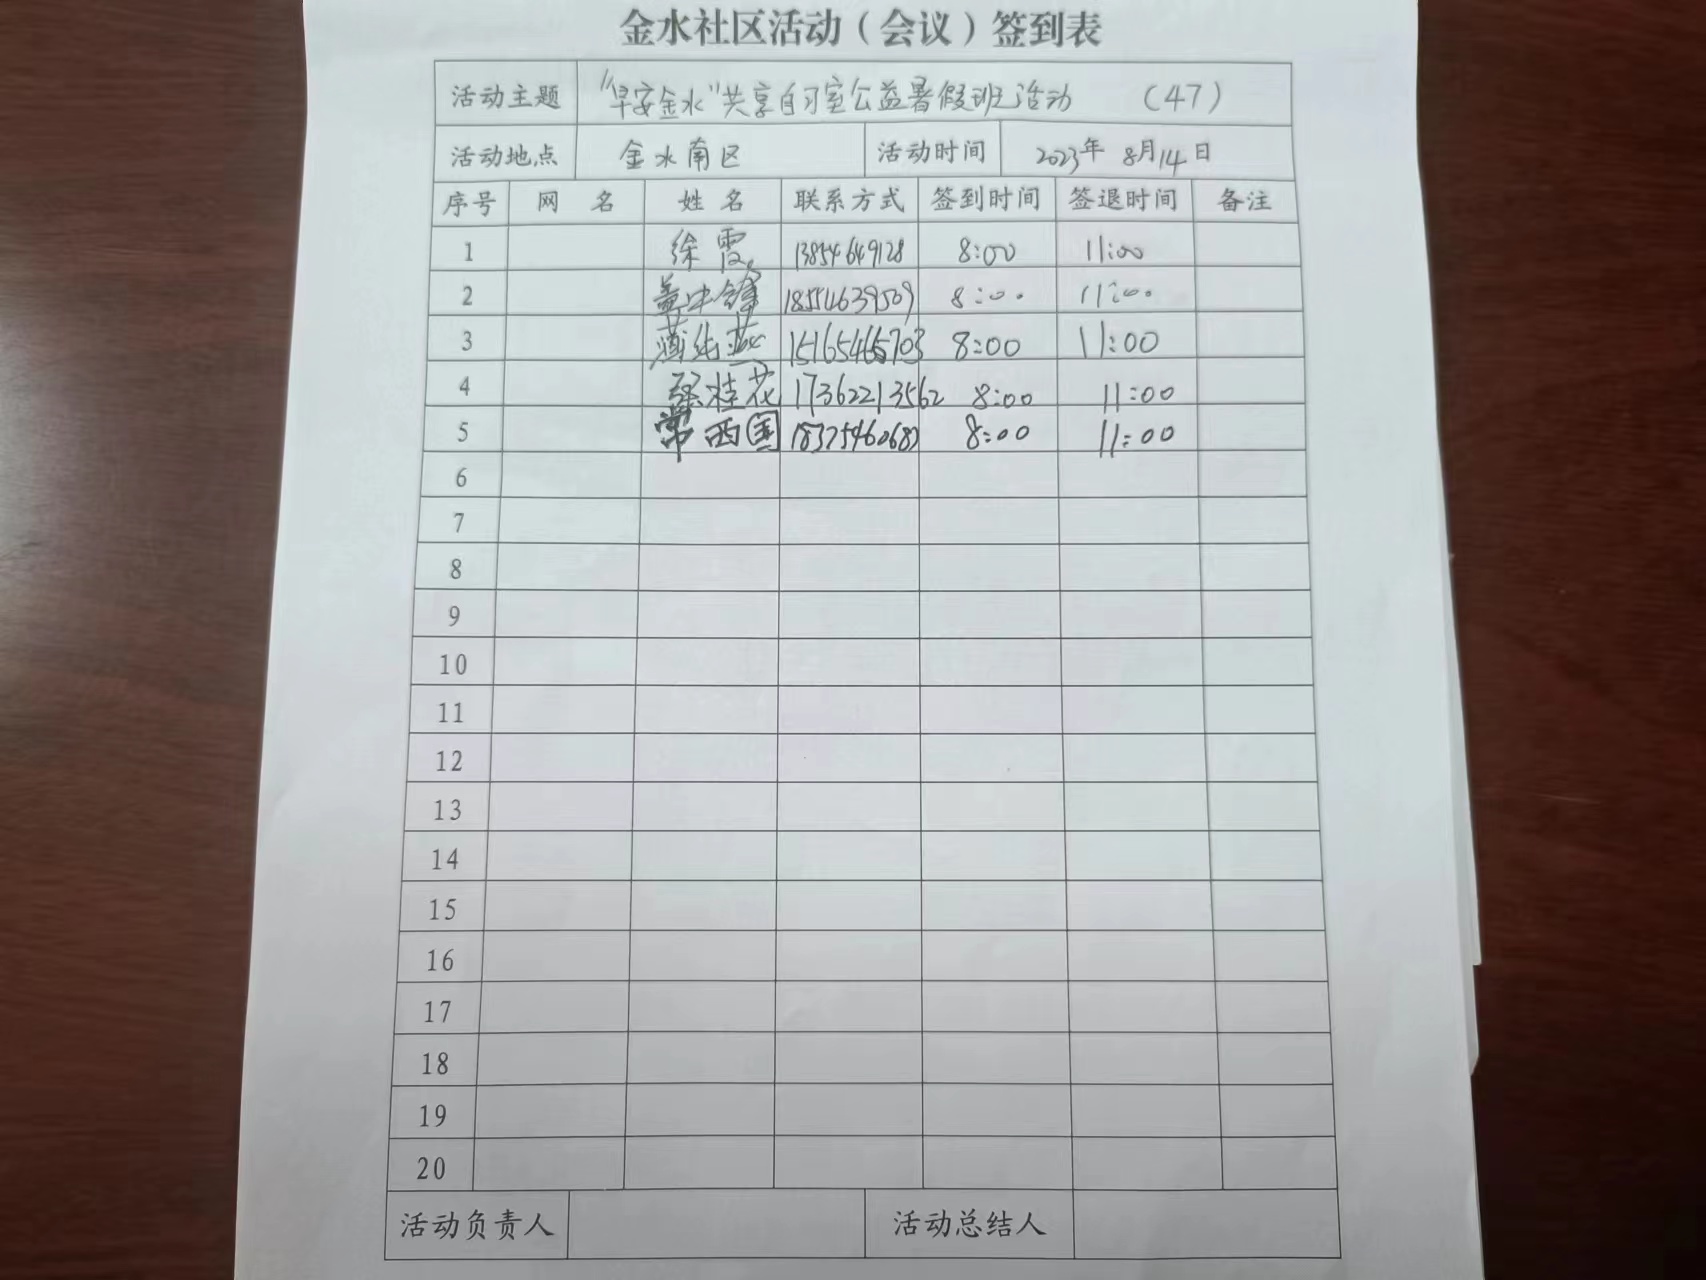 金水社区活动（会议）签到表
活动主题 “早安金水”共享自习室公益暑假班活动 （47）
活动地点 金水南区 活动时间 2023年8月14日
序号 网名 姓名 联系方式 签到时间 签退时间 备注
1 徐霞 13854649128 8:00 11:00
2 盖中锋 18554639509 8:00 11:00
3 燕 15165465703 8:00 11:00
4 桂花 17362213562 8:00 11:00
5 常西国 8:00 11:00
6
7
8
9
10
11
12
13
14
15
16
17
18
19
20
活动负责人 活动总结人